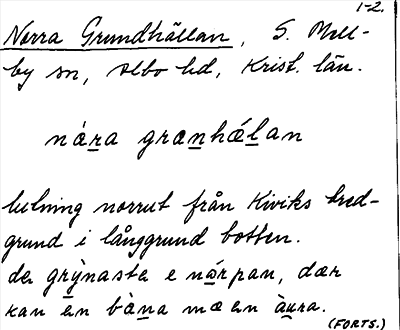 1-2.
Norra Grundhällan, S. Mell-
by sn, Albo hd, Krist. län.
nára grænhǽlan
lutning norrut från Kiviks bred-
grund i långgrund botten.
de grỳnasta e nǻrpan, dær
kan én bàna mæ en àura.
(FORTS.)